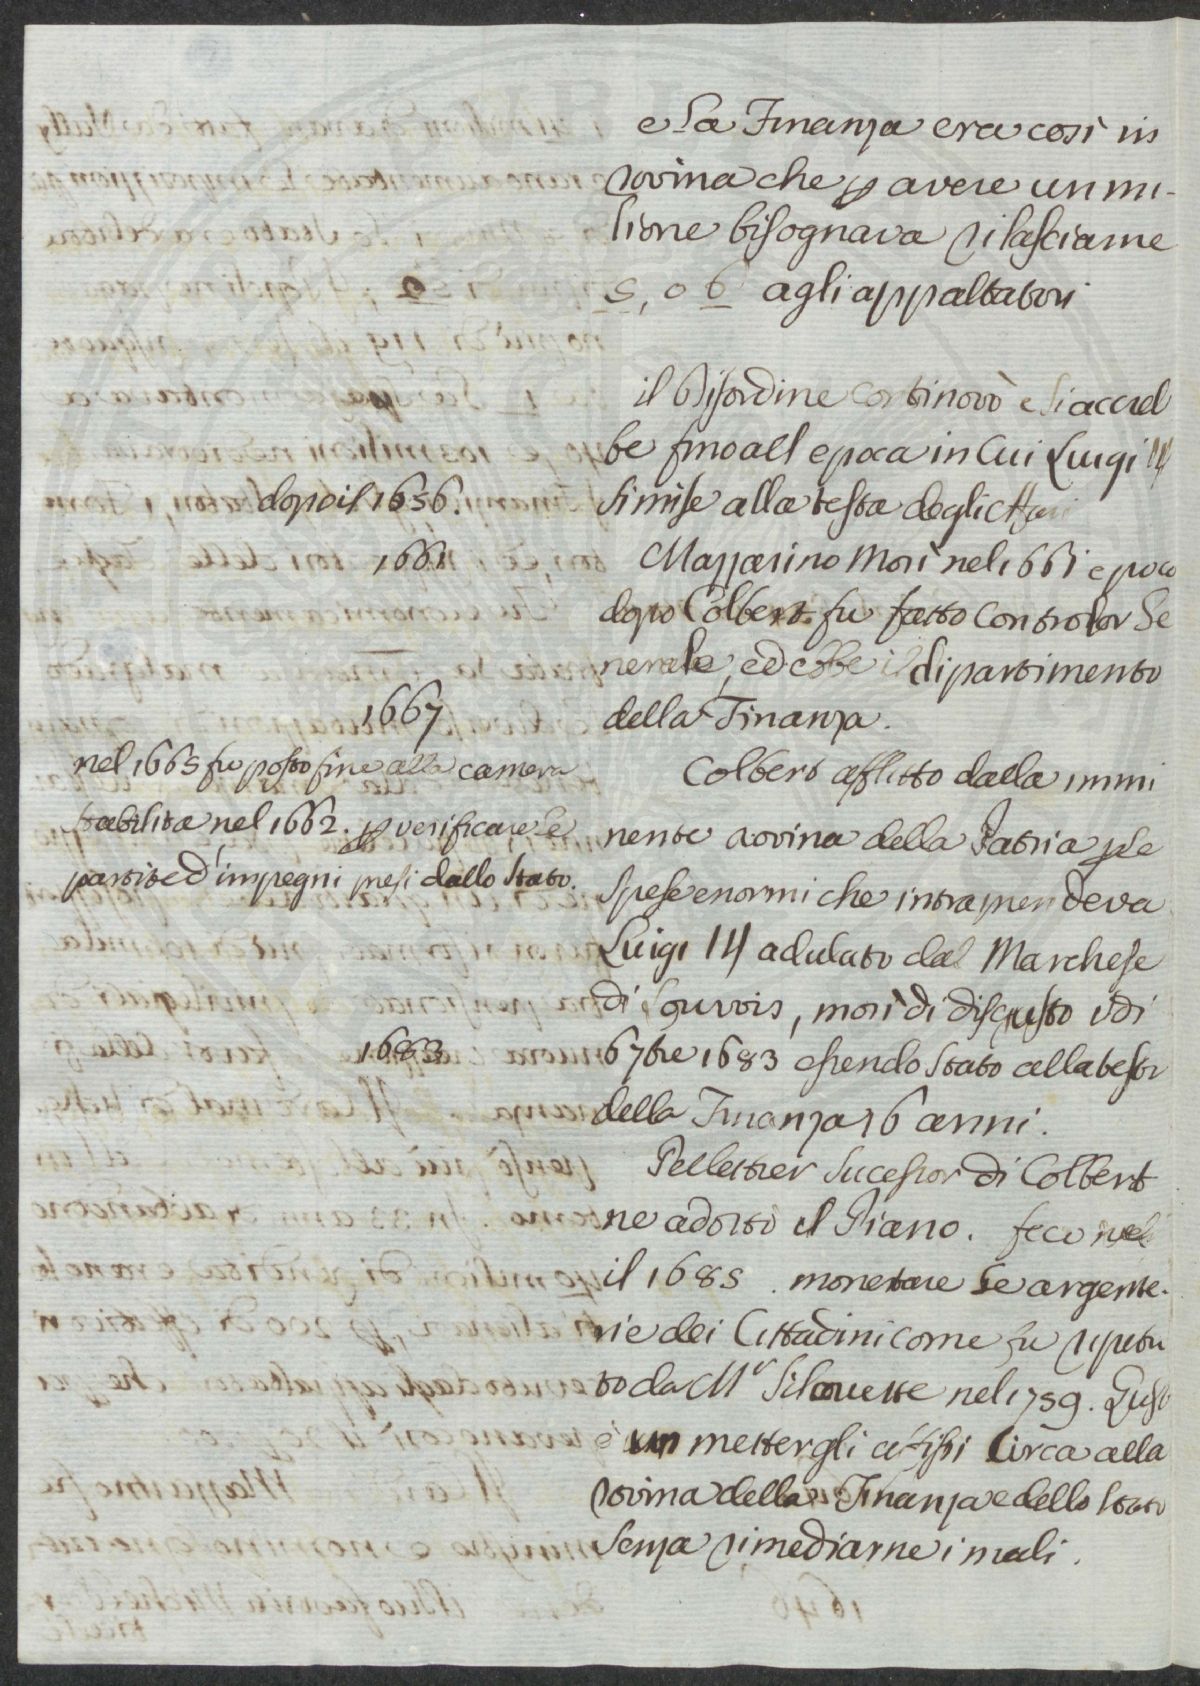 e la Finanza era così in
rovina che p avere un mi-
lione bisognava rilasciarne
5, o 6 agli appaltatori
il disordine continovò e si accreb
be fino all epoca in cui Luigi 14
dopo il 1656.
si mise alla testa degli affari
1661
Mazzarino morì nel 1661 e poco
dopo Colbert fu fatto Controlor Ge
nerale, ed ebbe il dipartimento
1667
della Finanza.
nel 1665 fu posto fine alla camera
stabilita nel 1662. p verificare le
partite d'impegni presi dallo Stato.
Colbert afflitto dalla immi
nente rovina della Patria p le
spese enormi che intraprendeva
Luigi 14 adulato dal Marchese
di Louvois, morì di disgusto i dì
1683
6 7bre 1683 essendo stato alla testa
della Finanza 16 anni.
Pelletier sucessor di Colbert
ne adottò il Piano. fece
il 1685. monetare le argente-
rie dei Cittadini come fu ripetu
to da Mr Silouette nel 1759. Questo
è un mettergli
rovina della Finanza e dello Stato
senza rimediarne i mali.